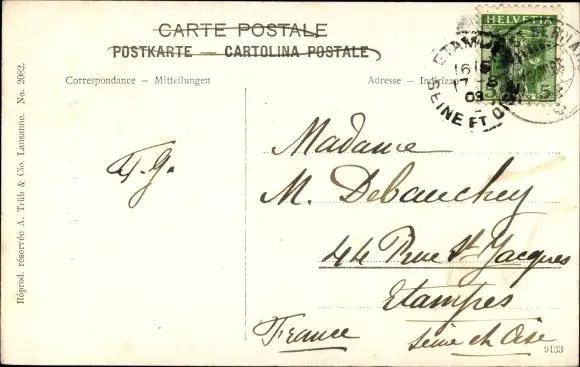 CARTE POSTALE
POSTKARTE — CARTOLINA POSTALE
Correspondance — Mitteilungen
Adresse — Indirizzo
HELVETIA
5 5
ETAMPES
16 15
17 - 8
09
SEINE ET OISE
Madame
M. Debauchey
44 Rue St Jacques
Etampes
France Seine et Oise
F. G.
Réprod. réservée A. Trüb & Cie. Lausanne. No. 2082.
9133